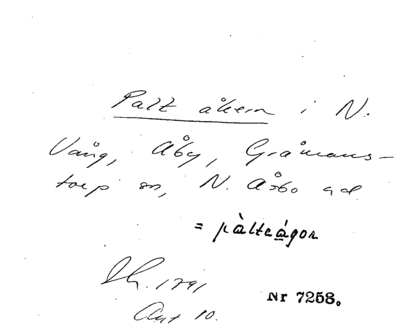 Palt åkern i N.
Vång, Åby, Gråmans-
torp sn, N. Åsbo hd
= pàlteågor
1791
Akt 10.
Nr 7258.